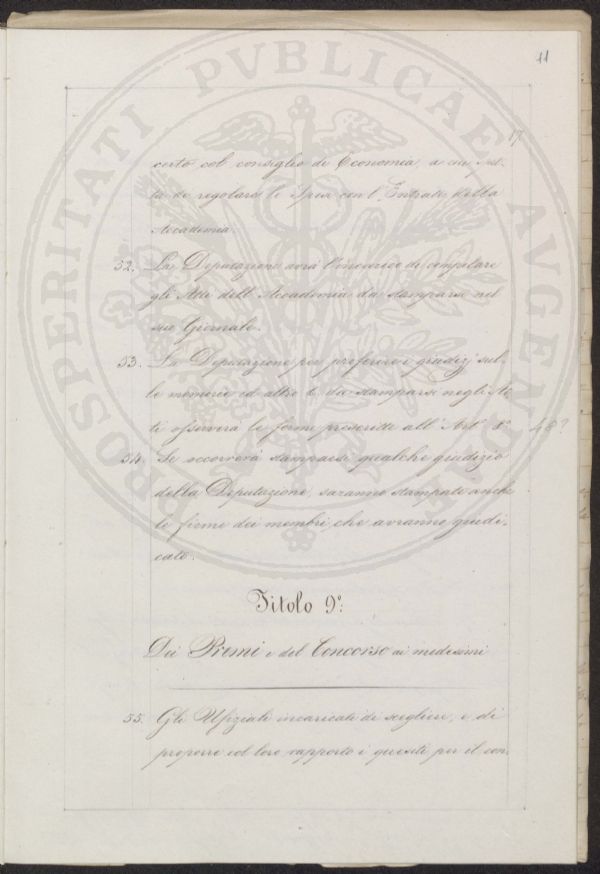 11
17
certo col consiglio di Economia, a cui spet-
ta di regolare le spese con l'Entrate della
Accademia.
52. La Deputazione avrà l'incarico di compilare
gli Atti dell'Accademia da stamparsi nel
suo Giornale.
53. La Deputazione per proferire i giudizj sul-
le memorie ed altro &. da stamparsi negli At-
ti osserverà le forme prescritte all'Art.º 48?
54. Se occorrerà stamparsi qualche giudizio
della Deputazione, saranno stampate anche
le firme dei membri, che avranno giudi-
cato.
Titolo 9º:
Dei Premi e del Concorso ai medesimi
55. Gli Ufiziali incaricati di scegliere, e di
proporre col loro rapporto i quesiti per il con-
PROSPERITATI PVBLICAE AVGENDAE